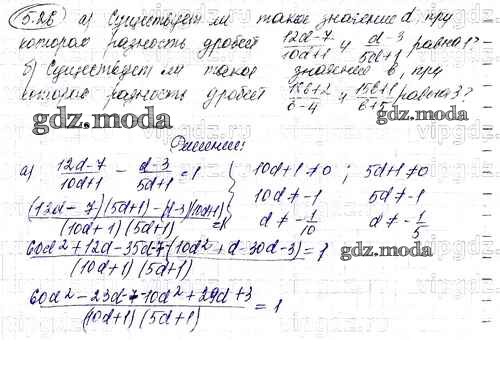 5.26 а) Существует ли такое значение d, при
котором разность дробей (12d-7)/(10d+1) и (d-3)/(5d+1) равна 1?
б) Существует ли такое значение b, при
котором разность дробей (18b+2)/(b-4) и (15b+1)/(b+5) равна 3?
gdz.moda
gdz.moda
Решение:
а) (12d-7)/(10d+1) - (d-3)/(5d+1) = 1 { 10d+1≠0 ; 5d+1≠0
10d≠-1 5d≠-1
((12d-7)(5d+1)-(d-3)(10d+1))/((10d+1)(5d+1)) = 1 d≠-1/10 d≠-1/5
gdz.moda
(60d²+12d-35d-7-(10d²+d-30d-3))/((10d+1)(5d+1)) = 1
gdz.moda
(60d²-23d-7-10d²+29d+3)/((10d+1)(5d+1)) = 1